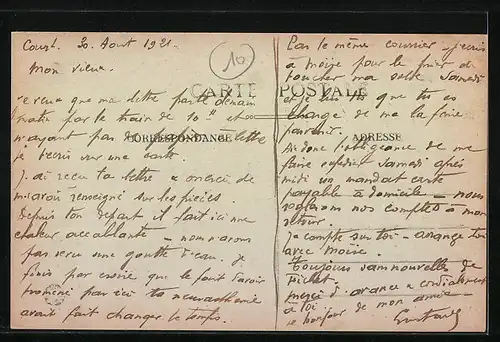 10
CARTE POSTALE
CORRESPONDANCE
ADRESSE
Court. 30. Aout 1921.
Mon vieux.
Je veux que ma lettre parte demain
matin par le train de 10 H et
n'ayant pas de papier à lettre
je t'écris sur une carte.
J'ai reçu ta lettre et merci de
m'avoir renseigné sur les pièces.
Depuis ton départ il fait ici une
chaleur accablante – nous n'avons
pas reçu une goutte d'eau. Je
finis par croire que le fait d'avoir
promené par ici ta neurasthénie
avait fait changer le temps.
Par le même courrier j'écris
à Moire pour le prier de
toucher ma solde samedi
et je lui dis que tu es
chargé de me la faire
parvenir.
Aie donc l'obligeance de me
faire expédier samedi après
midi un mandat carte
payable à domicile – nous
réglerons nos comptes à mon
retour.
Je compte sur toi – arrange toi
avec Moire.
Toujours sans nouvelles de
Pichet.
Merci d'avance et cordialement
à toi.
le bonjour de mon amie
Gustave